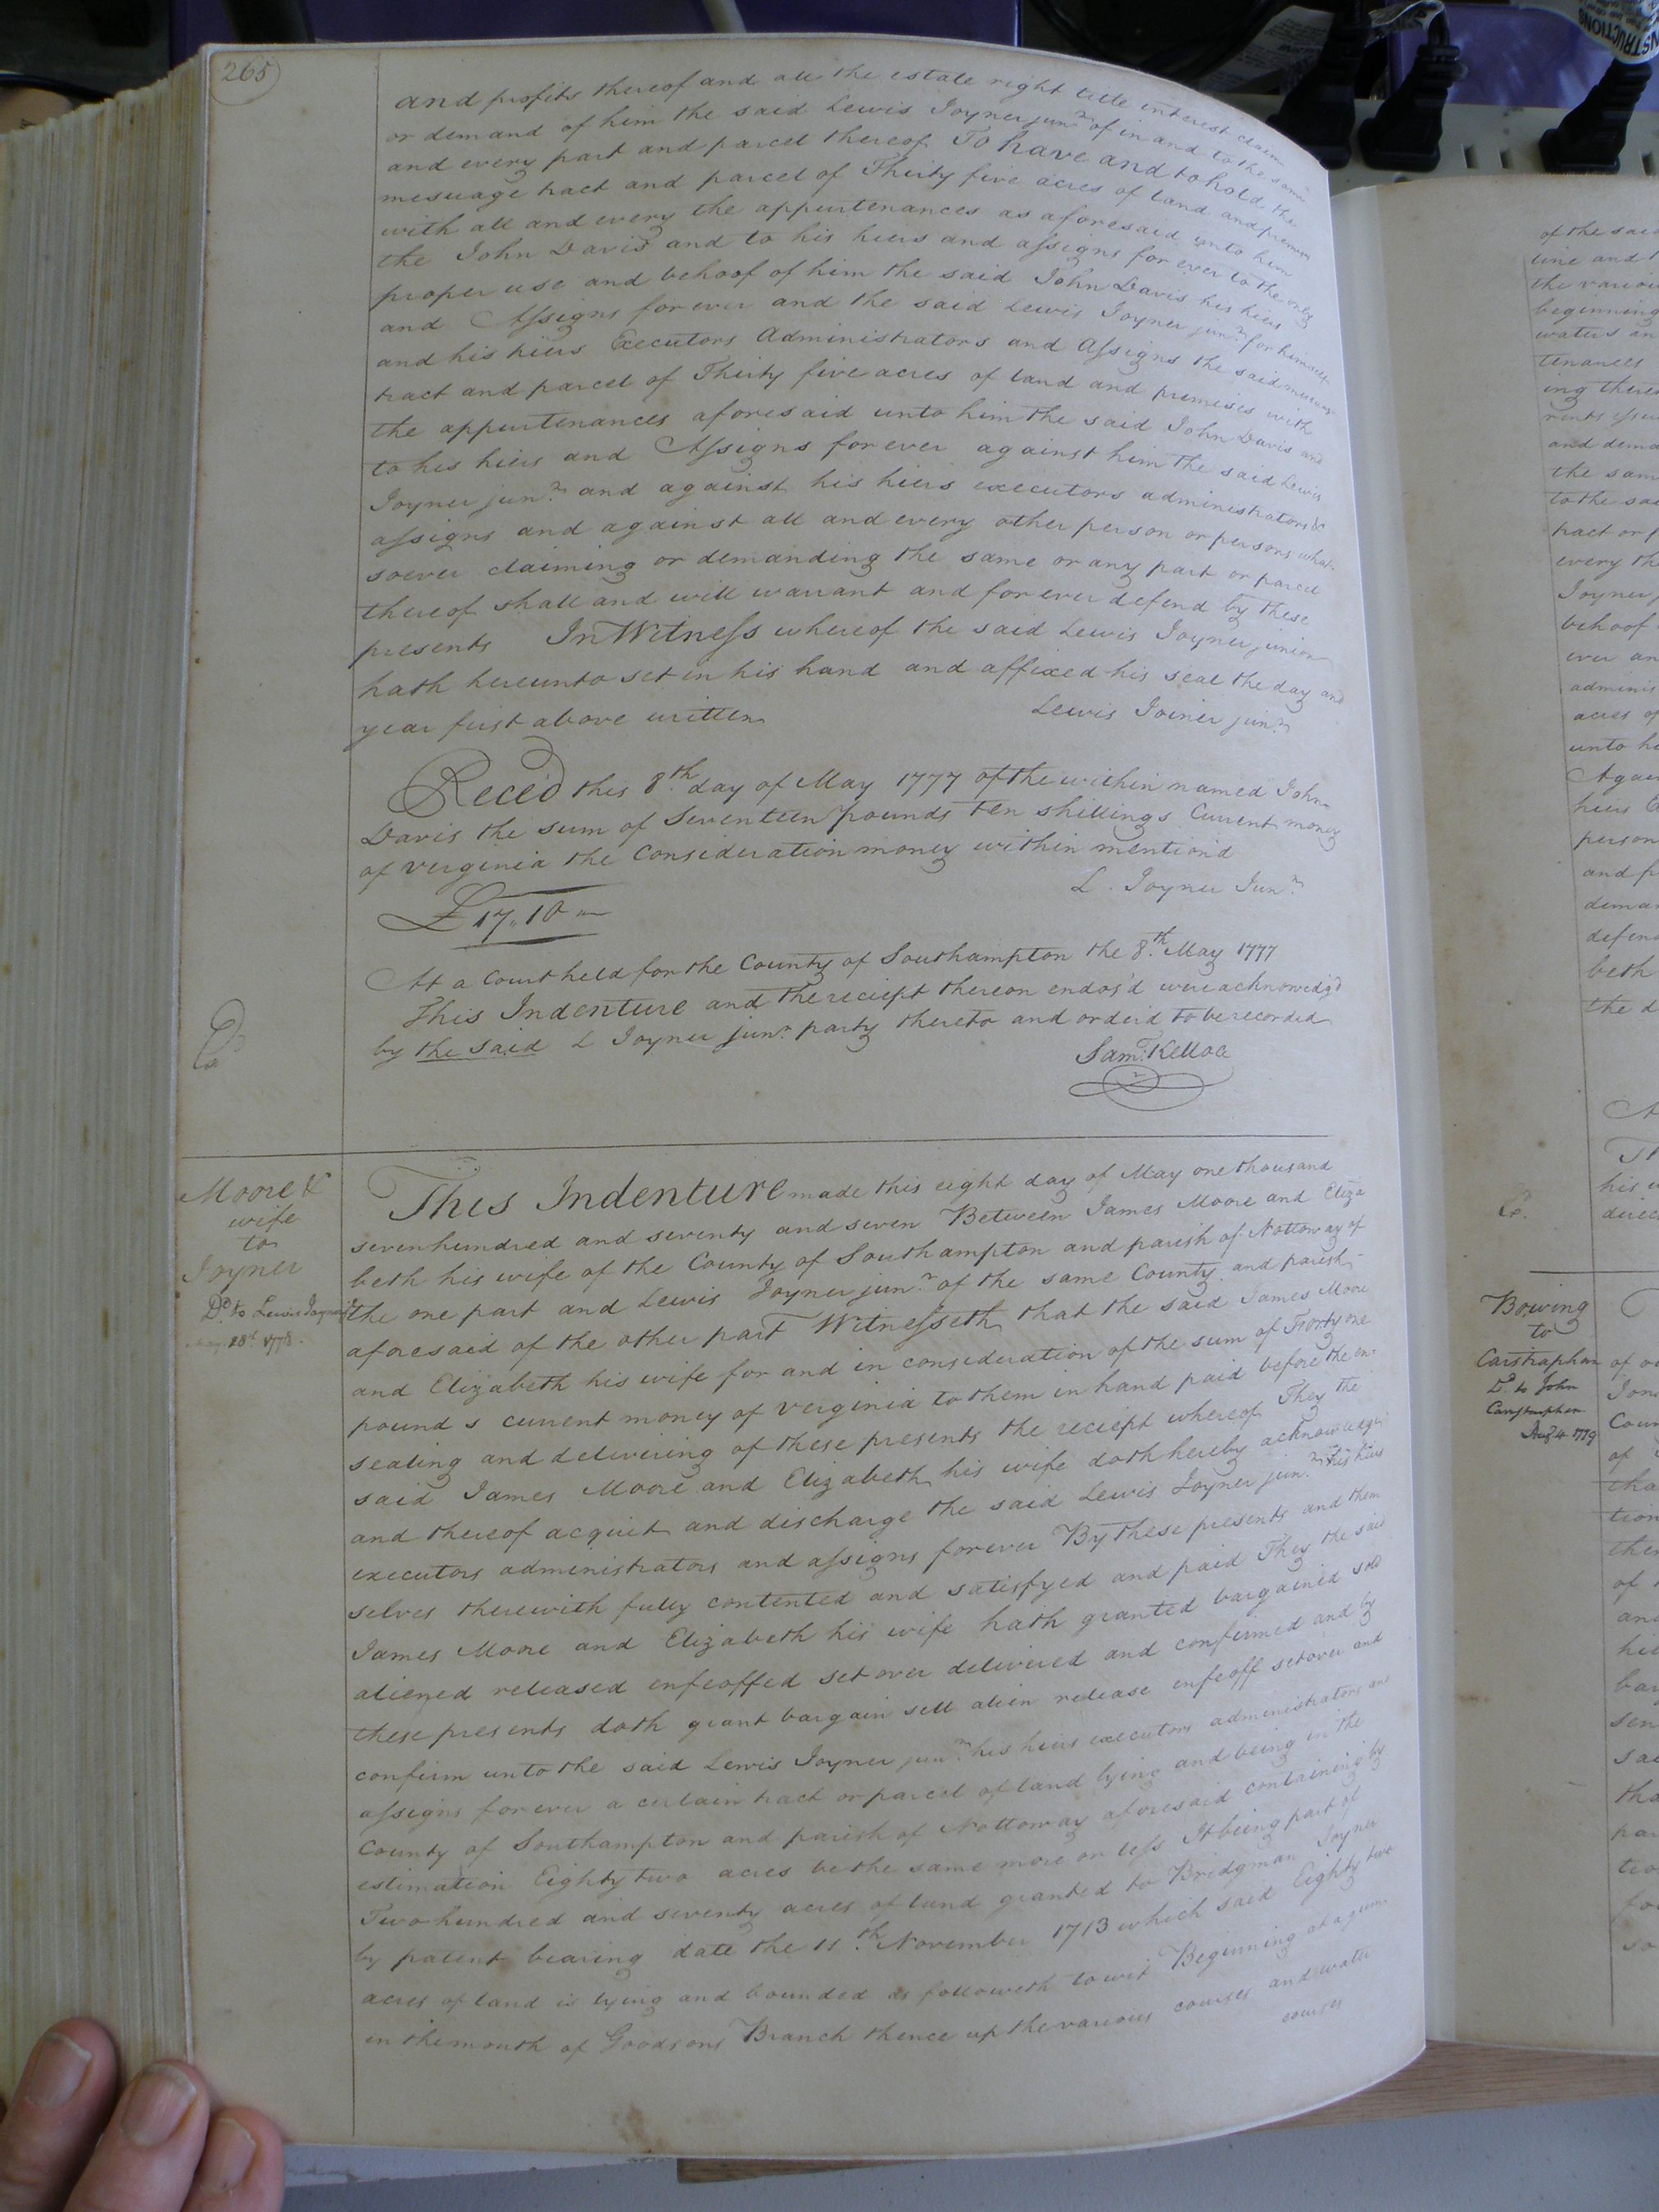 265
and profits thereof and all the estate right title interest claim
or demand of him the said Lewis Joyner junr of in and to the same
and every part and parcel thereof To have and to hold the
mesuage tract and parcel of Thirty five acres of land and premises
with all and every the appurtenances as aforesaid unto him
the John Davis and to his hiers and assigns for ever to the only
proper use and behoof of him the said John Davis his hiers
and Assigns for ever and the said Lewis Joyner junr for himself
and his hiers Executors Administrators and Assigns the said mesuage
tract and parcel of Thirty five acres of land and premises with
the appurtenances aforesaid unto him the said John Davis and
to his hiers and Assigns for ever against him the said Lewis
Joyner junr and against his hiers executors administrators &
assigns and against all and every other person or persons what
soever claiming or demanding the same or any part or parcel
thereof shall and will warrant and for ever defend by these
presents In Witness whereof the said Lewis Joyner junior
hath hereunto set in his hand and affixed his seal the day and
year first above written Lewis Joiner junr
Reced this 8th day of May 1777 of the within named John
Davis the sum of Seventeen pounds ten shillings Current money
of Verginia the Consideration money within mention'd
L. Joyner Junr
£17,,10
At a Court held for the County of Southampton the 8th May 1777
This Indenture and the reciept thereon endos'd were acknowledg'd
by the said L Joyner junr party thereto and orderd to be recorded
Saml Kelloe
Moore &
wife
to
Joyner
Dd to Lewis Joyner
28t 1778.
This Indenture made this eight day of May one thousand
seven hundred and seventy and seven Between James Moore and Eliza
beth his wife of the County of Southampton and parish of Nottoway of
the one part and Lewis Joyner junr of the same County and parish
aforesaid of the other part Witnesseth that the said James Moore
and Elizabeth his wife for and in consideration of the sum of Fforty one
pounds current money of Verginia to them in hand paid before the en
sealing and delivering of these presents the reciept whereof They the
said James Moore and Elizabeth his wife doth hereby acknowledge
and thereof acquiet and discharge the said Lewis Joyner junr his hiers
executors administrators and assigns for ever By these presents and them
selves therewith fully contented and satisfyed and paid They the said
James Moore and Elizabeth his wife hath granted bargained sold
aliened released enfeoffed set over delivered and confirmed and by
these presents doth grant bargain sell alien release enfeoff set over and
confirm unto the said Lewis Joyner junr his hiers executors administrators and
assigns for ever a certain tract or parcel of land lying and being in the
County of Southampton and parish of Nottoway aforesaid containing by
estimation Eighty two acres be the same more or less It being part of
Two hundred and seventy acres of land granted to Bridgman Joyner
by patent bearing date the 11th November 1713 which said Eighty two
acres of land is lying and bounded as followeth to wit Beginning at a gum
in the mouth of Goodsons Branch thence up the various courses and water
courses
of the said
line and
the various
beginning
waters an
tenances
ing there
rents issu
and dema
the sam
to the sai
tract or p
every th
Joyner
behoof
ever an
adminis
acres of
unto hi
Again
hiers
person
and p
deman
defend
beth
the d
Th
his w
direc
Bowing
to
Carstraphen
Dd to John
Carstraphen
Augt 4 1779
of
Jon
Coun
of
tha
tion
them
of
and
his
bar
sen
sai
tha
par
tio
for
so